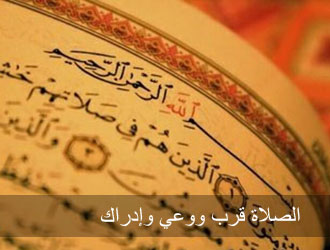 بِسْمِ اللَّهِ الرَّحْمَٰنِ الرَّحِيمِ
١ الَّذِينَ هُمْ فِي صَلَاتِهِمْ
٢ وَالَّذِينَ
الصلاة قرب ووعي وإدراك